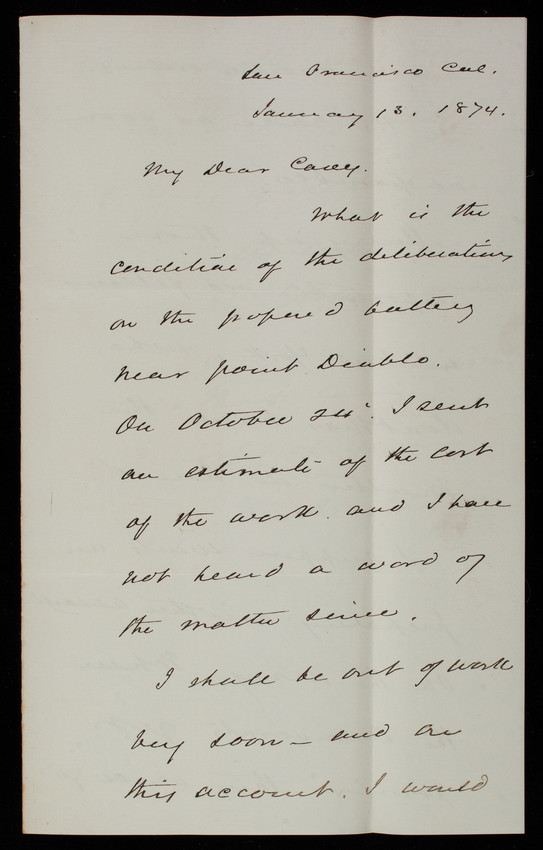 San Francisco Cal.
January 13. 1874.
My Dear Casey.
What is the
condition of the deliberations
on the proposed battery
near point Diablo.
On October 24". I sent
an estimate of the cost
of the work. and I have
not heard a word of
the matter since.
I shall be out of work
very soon - and on
this account. I would